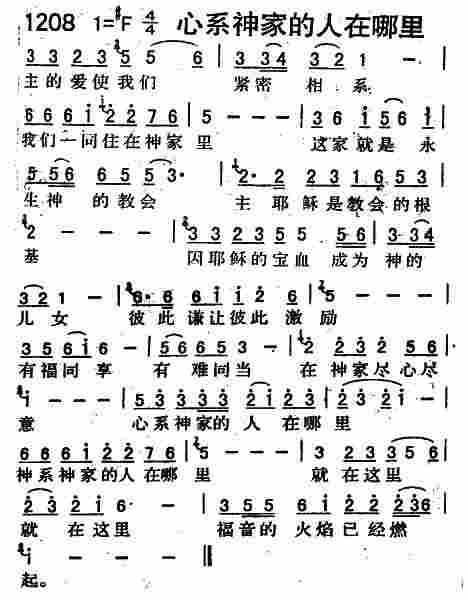 1208 1=♯F 4/4 心系神家的人在哪里
3 3 2 3 5 5 5 6 | 3 3 4 3 2 1 — |
主的爱使我们 紧密 相 系
6 6 6 i 2 2 7 6 | 5 — — — | 3 6 i 5 6 i
我们一同住在神家 里 这家就是永
5 5 6 6 5 5 3· | 2· 2 2 3 1 6 5 3 |
生神 的教会 主 耶 稣是教会的根
2 — — — | 3 3 2 3 5 5 5 6 | 3·3 3 4
基 因耶稣的宝血 成为 神的
3 2 1 — | 6· 6 6 i i 2 6 | 5 — — — |
儿女 彼此谦让彼此 激 励
3 5 6 i 6 — | 5 6 6 5 3 — | 2 2 3 2 5 6
有福同享 有 难同当 在 神家尽心尽
i — — — | 5 3 3 3 3 3 2 i | 2 3 2 i — |
意 心系神家的 人 在哪里
6 6 6 i 2 2 7 6 | 5 — — — | 3 2 3 3 5 6
神系神家的人在哪 里 就在这里
2 3 2 i 6 · — | 3 5 5 6 i 2 2 2 3 6 |
就 在这里 福音的 火焰已经燃
i — — — ‖
起。